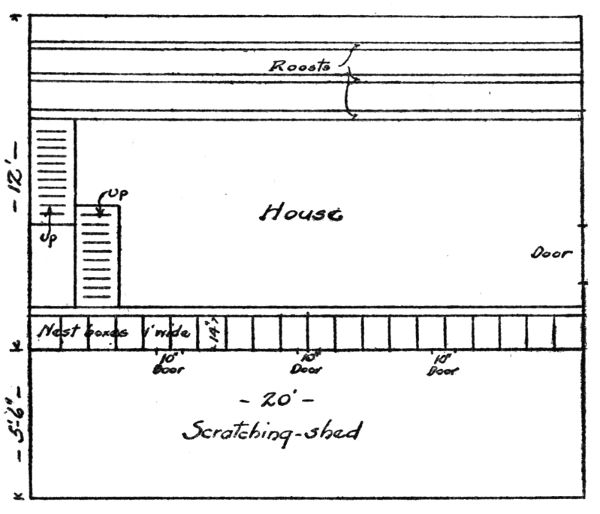 Roosts
- 12' -
up
up
House
Door
Nest boxes 1' wide
14"
10" Door
10" Door
10" Door
- 5'6" -
- 20' -
Scratching-shed